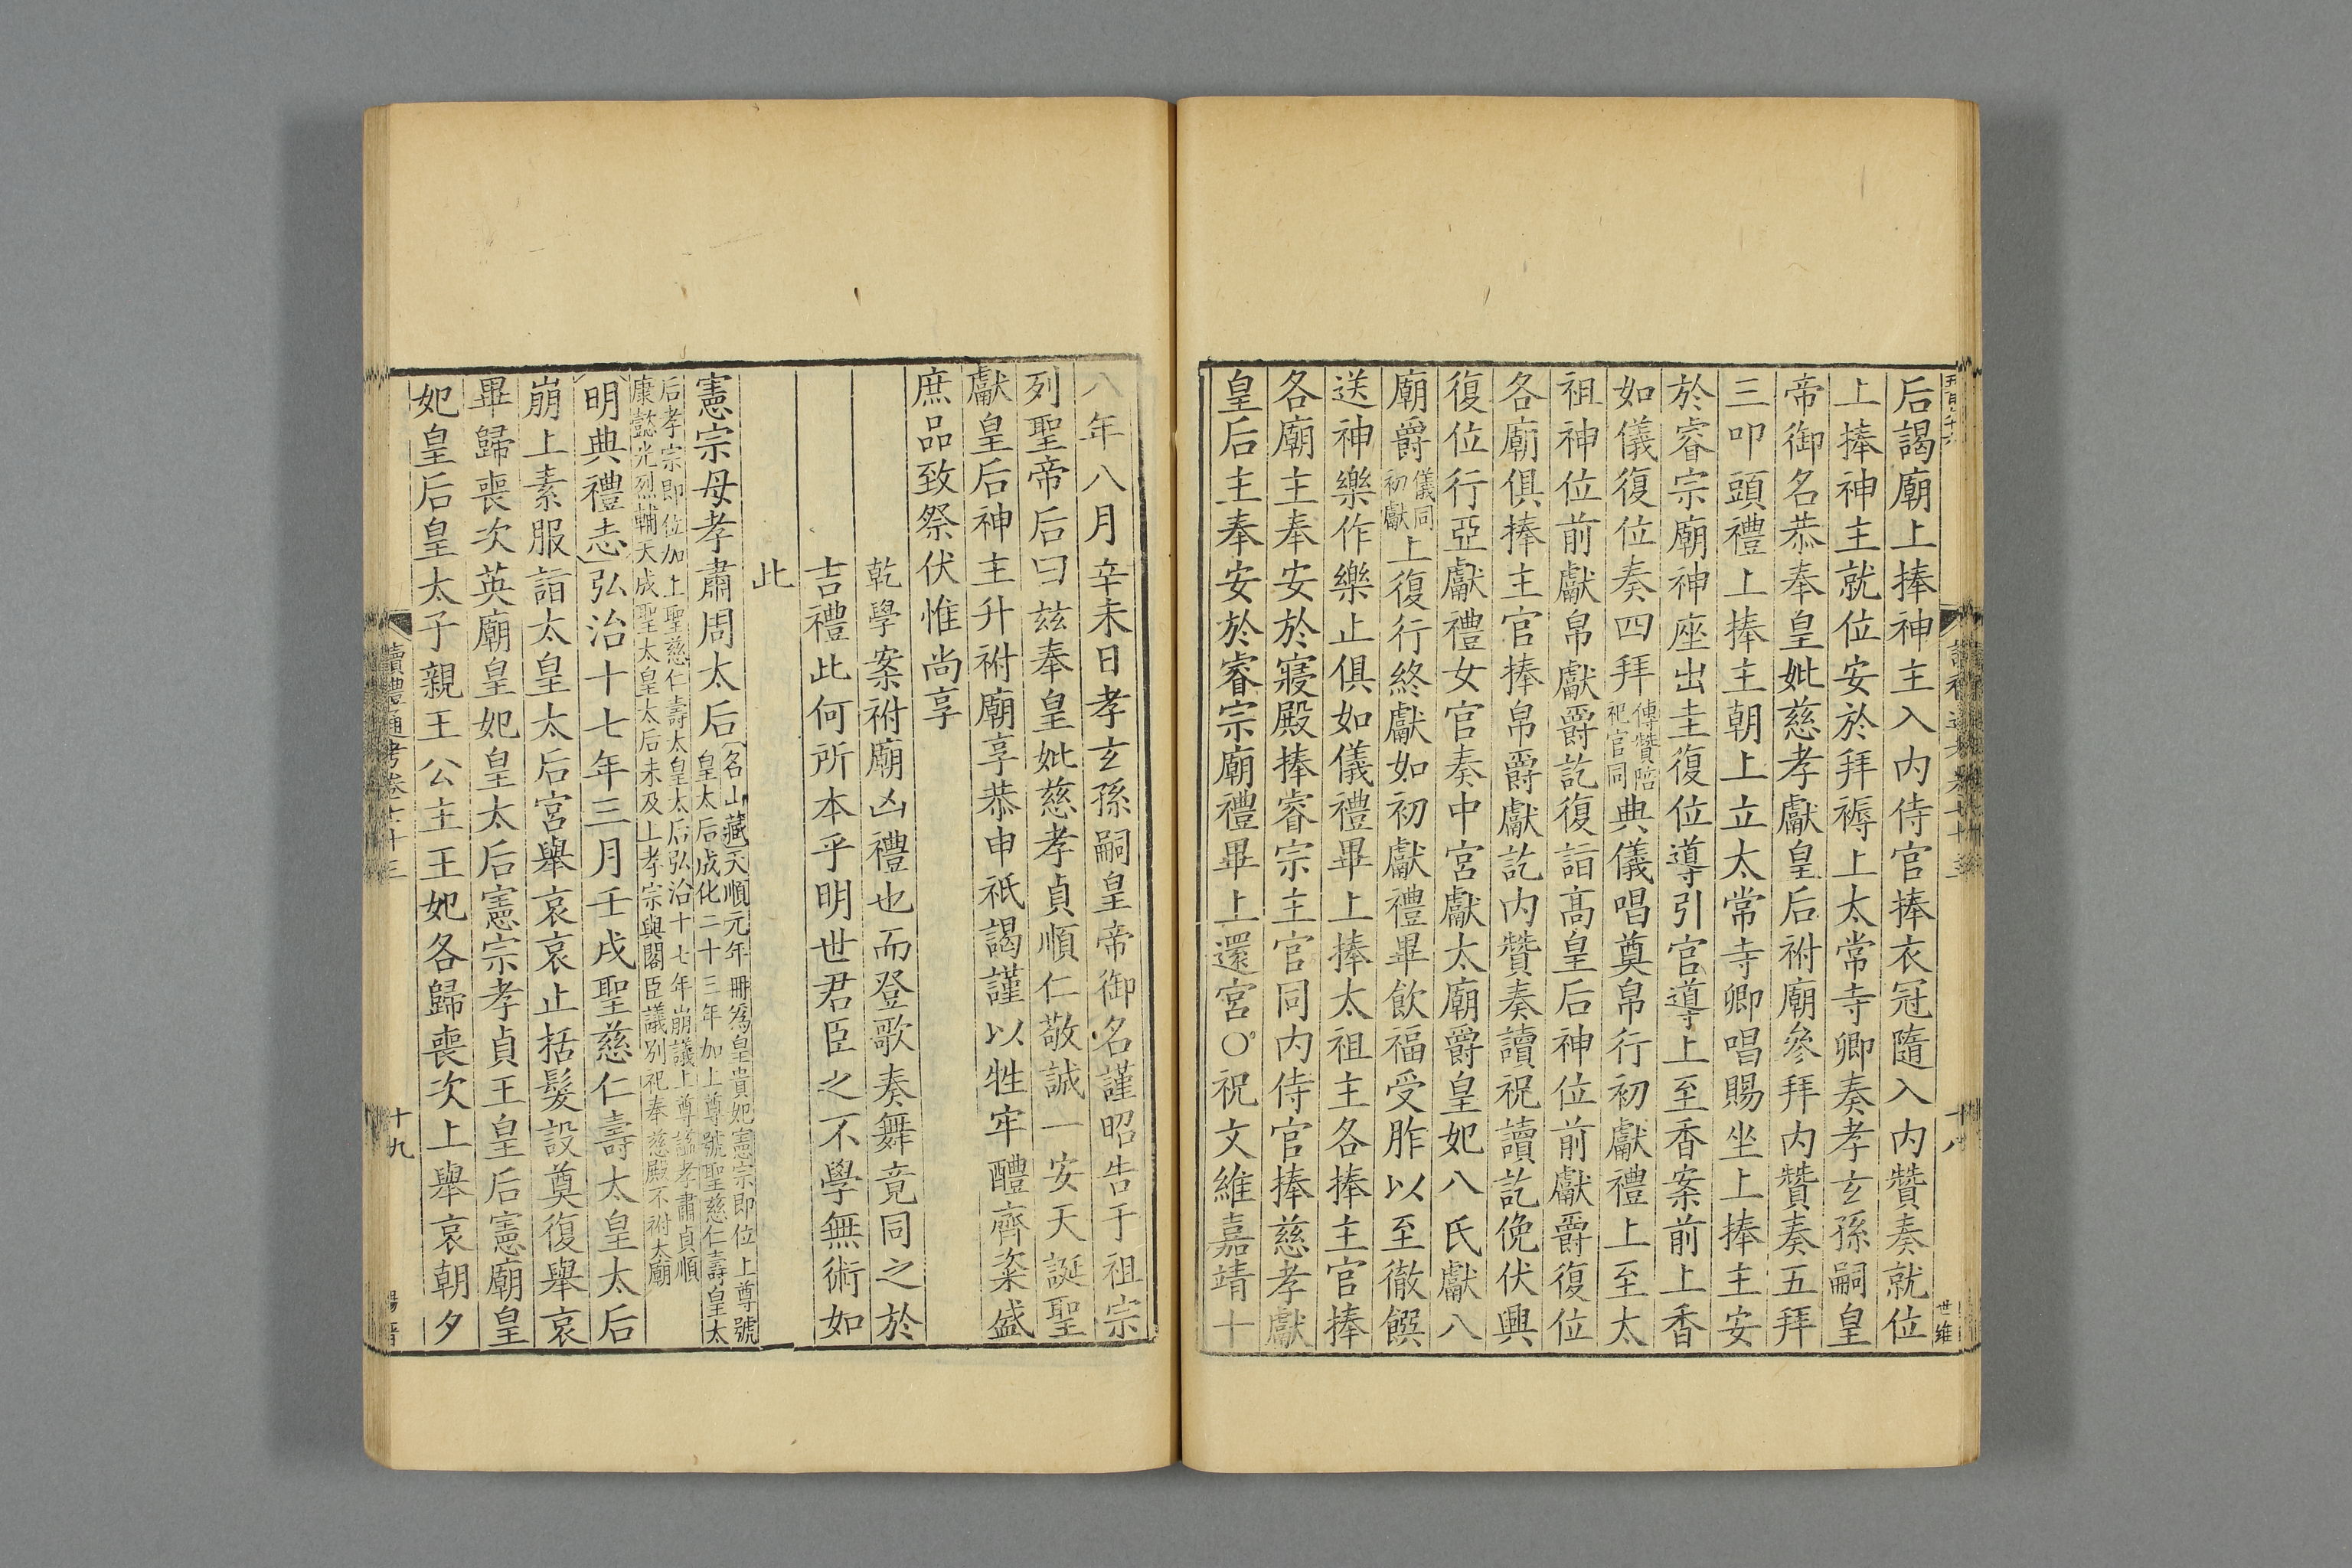 后謁廟上捧神主入內侍官捧衣冠隨入內贊奏就位
上捧神主就位安於拜褥上太常寺卿奏孝玄孫嗣皇
帝御名恭奉皇妣慈孝獻皇后祔廟參拜內贊奏五拜
三叩頭禮上捧主朝上立太常寺卿唱賜坐上捧主安
於睿宗廟神座出圭復位導引官導上至香案前上香
如儀復位奏四拜傳贊陪祀官同典儀唱奠帛行初獻禮上至太
祖神位前獻帛獻爵訖復詣高皇后神位前獻爵復位
各廟俱捧主官捧帛爵獻訖內贊奏讀祝讀訖俛伏興
復位行亞獻禮女官奏中宮獻太廟爵皇妃八氏獻八
廟爵儀同初獻上復行終獻如初獻禮畢飲福受胙以至徹饌
送神樂作樂止俱如儀禮畢上捧太祖主各捧主官捧
各廟主奉安於寢殿捧睿宗主官同內侍官捧慈孝獻
皇后主奉安於睿宗廟禮畢上還宮○祝文維嘉靖十
十八
世維
八年八月辛未日孝玄孫嗣皇帝御名謹昭告于祖宗
列聖帝后曰玆奉皇妣慈孝貞順仁敬誠一安天誕聖
獻皇后神主升祔廟享恭申祇謁謹以牲牢醴齊粢盛
庶品致祭伏惟尚享
乾學案祔廟凶禮也而登歌奏舞竟同之於
吉禮此何所本乎明世君臣之不學無術如
此
憲宗母孝肅周太后名山藏天順元年冊為皇貴妃憲宗即位上尊號
皇太后成化二十三年加上尊號聖慈仁壽皇太
后孝宗即位加上聖慈仁壽太皇太后弘治十七年崩議上尊謚孝肅貞順
康懿光烈輔天成聖太皇太后未及上孝宗與閣臣議別祀奉慈殿不祔太廟
明典禮志弘治十七年三月壬戌聖慈仁壽太皇太后
崩上素服詣太皇太后宮舉哀哀止括髮設奠復舉哀
畢歸喪次英廟皇妃皇太后憲宗孝貞王皇后憲廟皇
妃皇后皇太子親王公主王妃各歸喪次上舉哀朝夕
讀禮通考卷七十三
十九